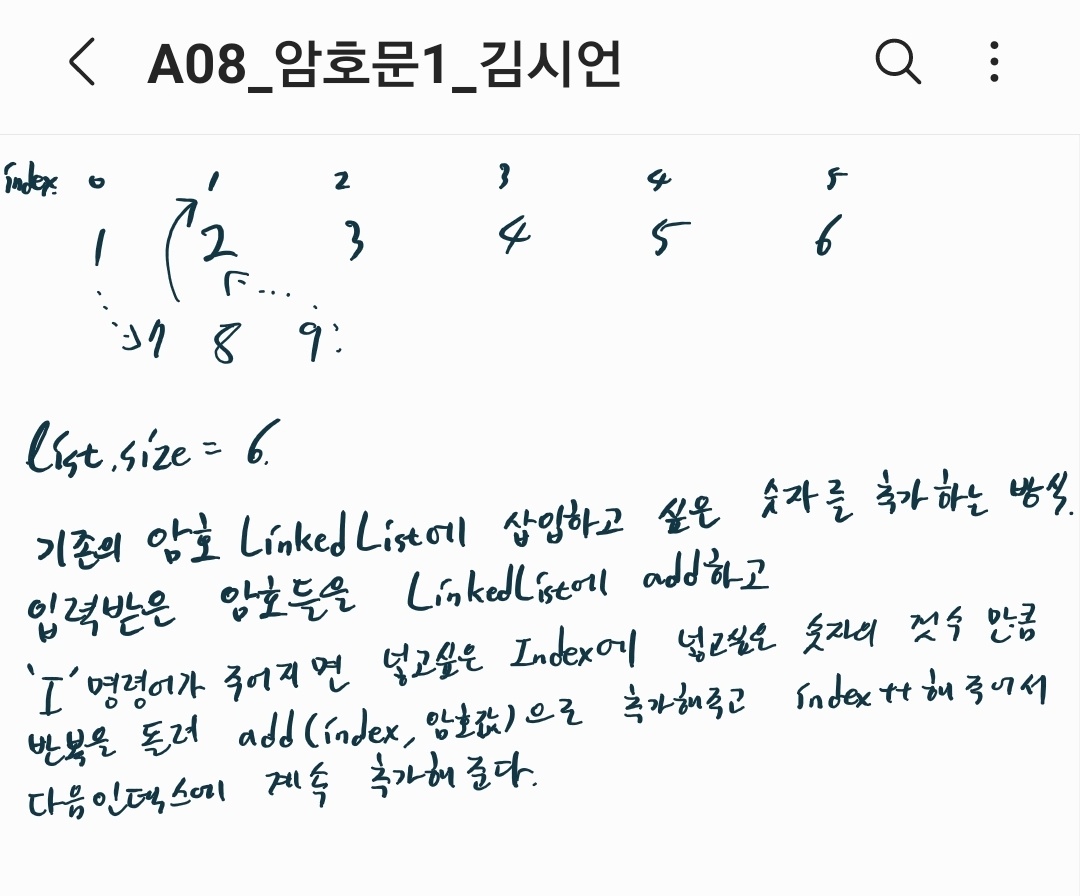 A08_암호문1_김시언
index. 0 1 2 3 4 5
1 2 3 4 5 6
7 8 9
list.size = 6.
기존의 암호 LinkedList에 삽입하고 싶은 숫자를 추가하는 방식.
입력받은 암호들을 LinkedList에 add하고
'I' 명령어가 주어지면 넣고싶은 Index에 넣고싶은 숫자의 갯수 만큼
반복을 돌려 add(index, 암호값)으로 추가해주고 index++ 해 주어서
다음인덱스에 계속 추가해 준다.